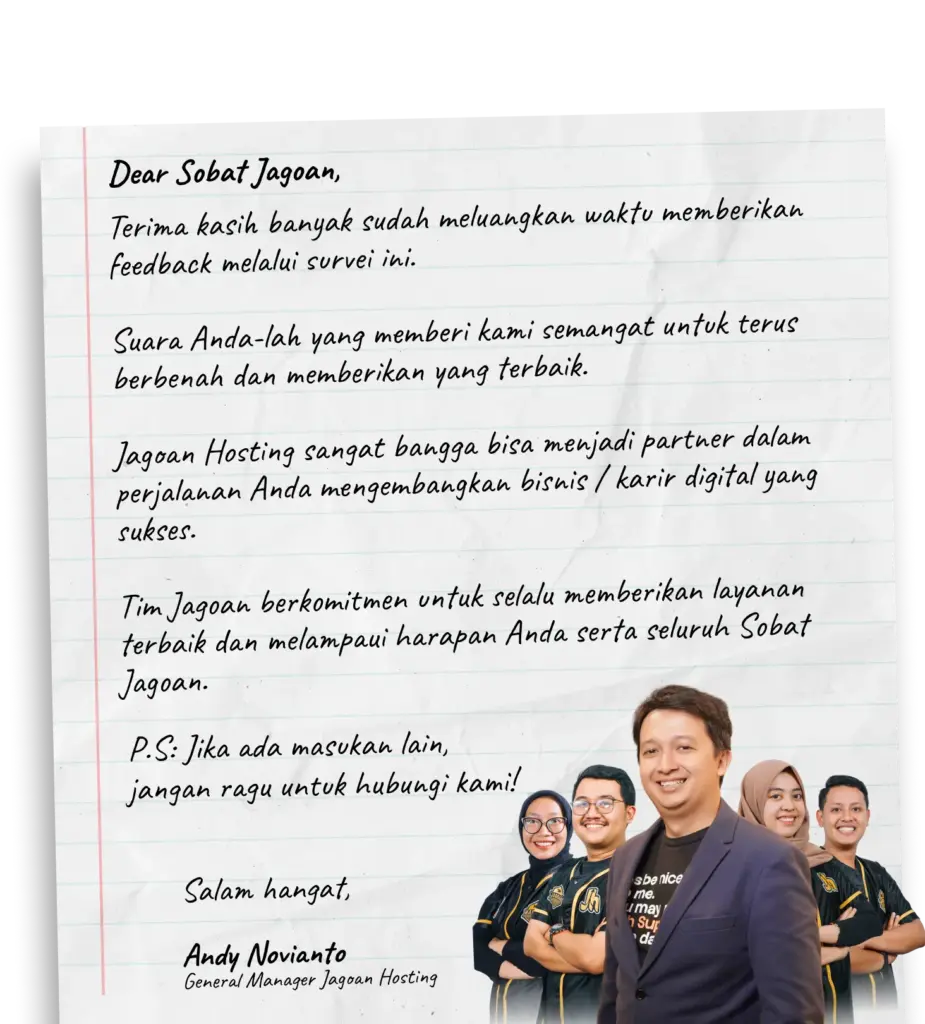 Dear Sobat Jagoan,
Terima kasih banyak sudah meluangkan waktu memberikan
feedback melalui survei ini.
Suara Anda-lah yang memberi kami semangat untuk terus
berbenah dan memberikan yang terbaik.
Jagoan Hosting sangat bangga bisa menjadi partner dalam
perjalanan Anda mengembangkan bisnis / karir digital yang
sukses.
Tim Jagoan berkomitmen untuk selalu memberikan layanan
terbaik dan melampaui harapan Anda serta seluruh Sobat
Jagoan.
P.S: Jika ada masukan lain,
jangan ragu untuk hubungi kami!
Salam hangat,
Andy Novianto
General Manager Jagoan Hosting
be nice
me.
may